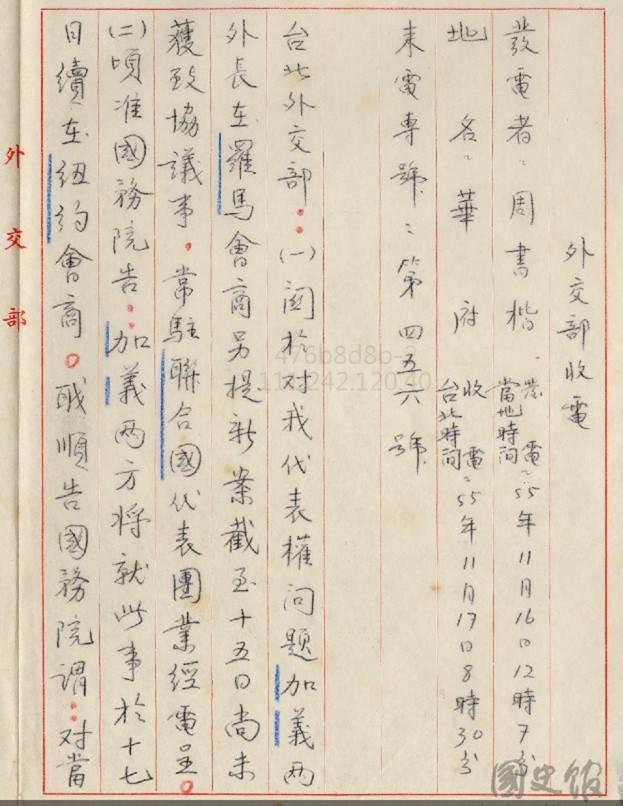 外交部收電
發電者：周書楷 發電：55年11月16日12時7分
當地時間
地名：華府 收電：55年11月17日8時30分
台北時間
來電專號：第四五六號
台北外交部：(一)關於對我代表權問題加義兩
外長在羅馬會商另提新案截至十五日尚未
獲致協議事。常駐聯合國代表團業經電呈。
(二)頃准國務院告：加義兩方將就此事於十七
日續在紐約會商。職順告國務院謂：对當
外交部
476b8d8b-
國史館